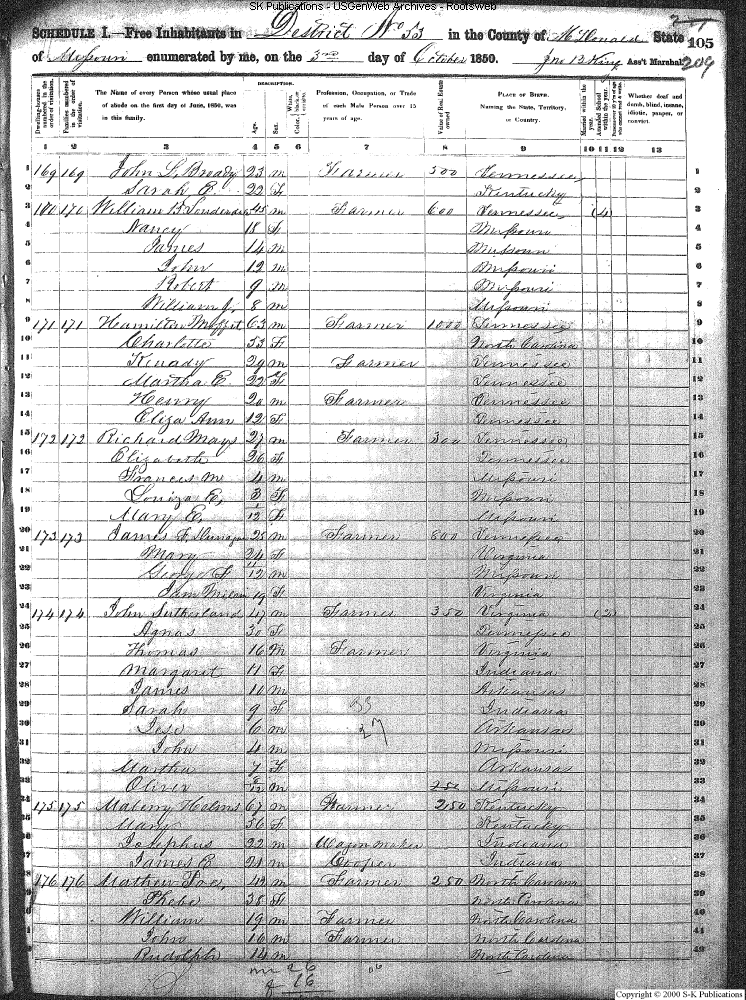 SK Publications - USGenWeb Archives - RootsWeb
SCHEDULE I.—Free Inhabitants in District No 53 in the County of McDonald State 105
of Missouri enumerated by me, on the 3rd day of October 1850. Ass't Marshal. 209
Dwelling-houses numbered in the order of visitation.
Families numbered in the order of visitation.
The Name of every Person whose usual place of abode on the first day of June, 1850, was in this family.
DESCRIPTION.
Age.
Sex.
Color.
Profession, Occupation, or Trade of each Male Person over 15 years of age.
Value of Real Estate owned.
PLACE OF BIRTH. Naming the State, Territory, or Country.
Married within the year.
Attended School within the year.
Whether deaf and dumb, blind, insane, idiotic, pauper, or convict.
1 2 3 4 5 6 7 8 9 10 11 12 13
1 169 169 John L. Broady 23 m Farmer 500 Tennessee 1
2 Sarah E. 22 F Kentucky 2
3 170 William B 45 m Farmer 600 Tennessee (4) 3
4 Nancy 18 F Missouri 4
5 James 14 m Missouri 5
6 John 12 m Missouri 6
7 Robert 9 m Missouri 7
8 William J. 8 m Missouri 8
9 171 171 Hamilton Moffit 63 m Farmer 1000 Tennessee 9
10 Charlotte 53 F North Carolina 10
11 Kenady 29 m Farmer Tennessee 11
12 Martha E 22 F Tennessee 12
13 Henry 20 m Farmer Tennessee 13
14 Eliza Ann 12 F Tennessee 14
15 172 172 Richard Mays 27 m Farmer 300 Tennessee 15
16 Elizabeth 26 F Tennessee 16
17 Frances M 4 m Missouri 17
18 Louiza E, 3 F Missouri 18
19 Mary E, 1/12 F Missouri 19
20 173 173 James F. 25 m Farmer 800 Tennessee 20
21 Mary 24 F Virginia 21
22 George F 11/12 m Missouri 22
23 Milan 19 F Virginia 23
24 174 174 John Sutherland 47 m Farmer 350 Virginia (2) 24
25 Agnas 30 F Tennessee 25
26 Thomas 16 M Farmer Virginia 26
27 Margaret 11 F Indiana 27
28 James 10 m Arkansas 28
29 Sarah 9 F Indiana 29
30 Jese 6 m 27 Arkansas 30
31 John 4 m Missouri 31
32 Martha 7 F Arkansas 32
33 Oliver m 250 Missouri 33
34 175 175 Maberry Holms 67 m Farmer 250 Kentucky 34
35 Mary 56 F Kentucky 35
36 Josephus 22 m Wagon maker Indiana 36
37 James E 21 m Cooper Indiana 37
38 176 176 Mathew 42 m Farmer 250 North Carolina 38
39 Phebe 38 F North Carolina 39
40 William 19 m Farmer North Carolina 40
41 John 16 m Farmer North Carolina 41
42 Rudolph 14 m North Carolina 42
m 26
F 16
Copyright © 2000 S-K Publications